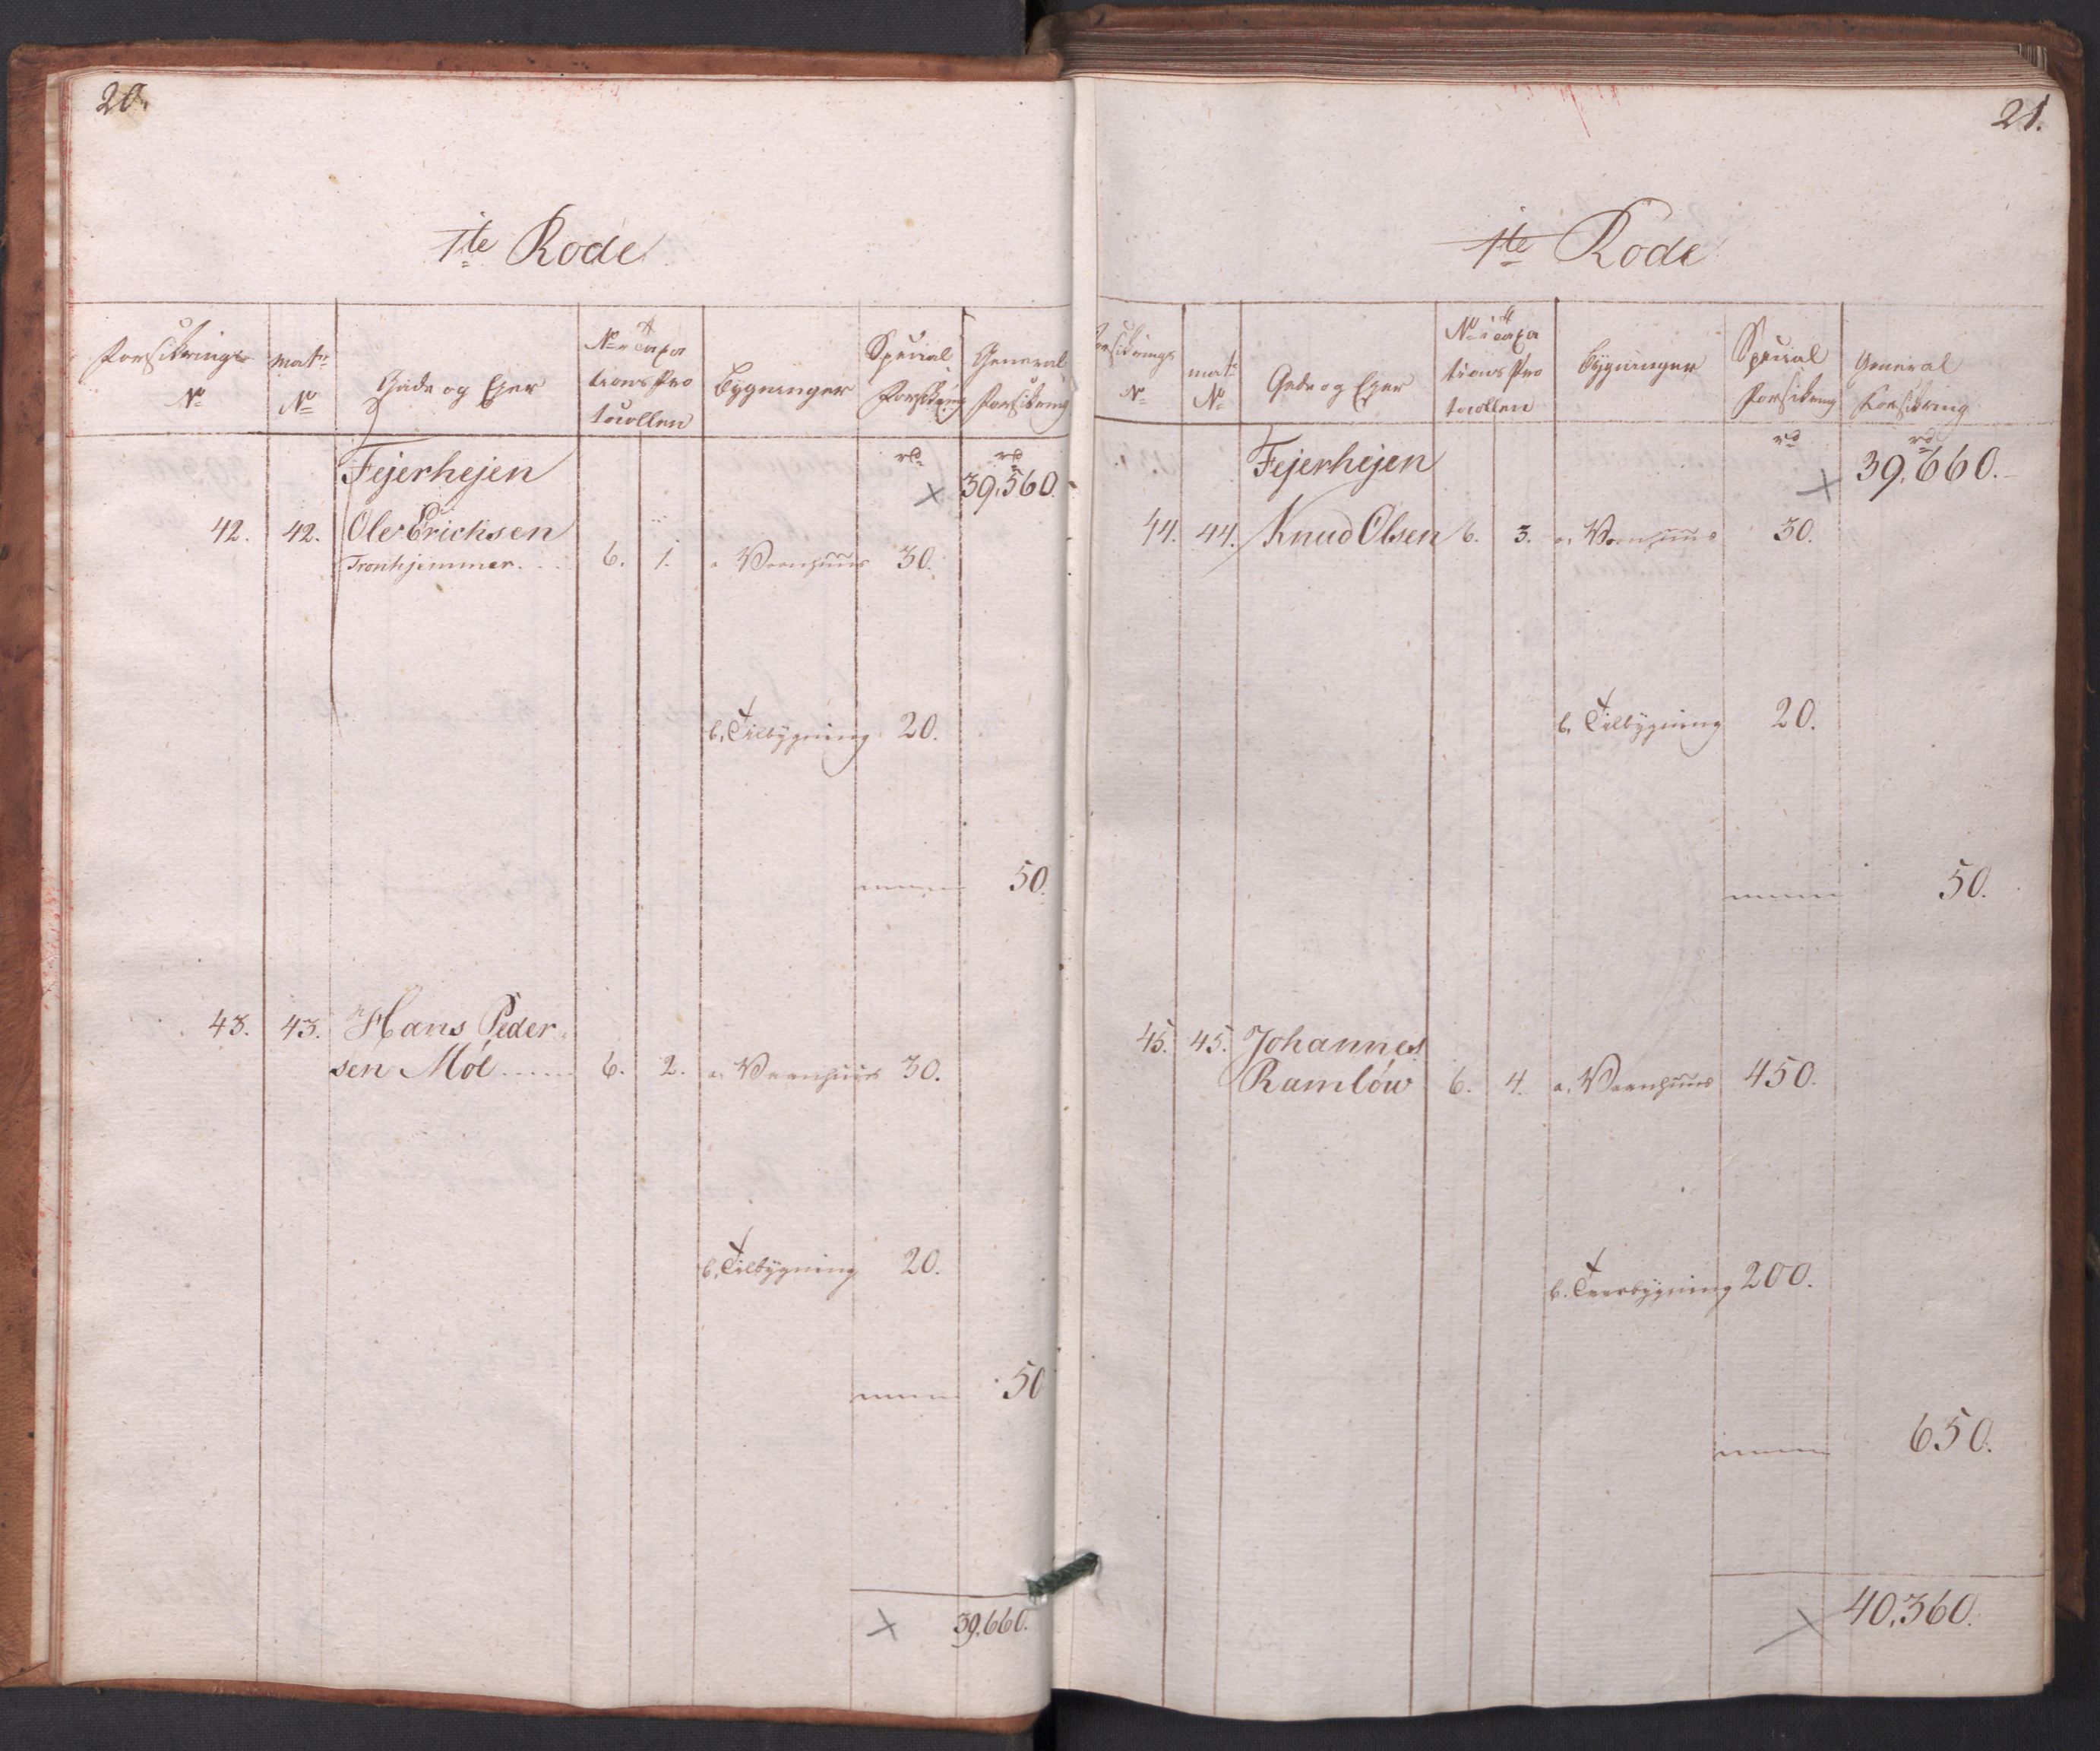 20.
1te Rode
Forsikrings No
Matr No
Gade og Ejer
No i Taxa
tions Pro
tocollen
Bygninger
Special Forsikring
General Forsikring
Fejerhejen
rd. rd.
39,560.
42. 42. Ole Erichsen
Tronhjemmer. . . 6. 1. a. Vaanhuus 30.
b. Tilbygning 20.
50.
43. 43. Hans Peder
sen Möl ..... 6. 2. a. Vaanhuus 30.
b. Tilbygning 20.
50
39,660.
21.
1te Rode
Forsikrings No
Matr No
Gade og Ejer
No i Taxa
tions Pro
tocollen
Bygninger
Special Forsikring
General Forsikring
Fejerhejen
rd rd
39,660.
44. 44. Knud Olsen 6. 3. a. Vaanhuus 30.
b. Tilbygning 20.
50.
45. 45. Johannes
Ramlöw 6. 4. a. Vaanhuus 450.
b. Tverbygning 200.
650.
40,360.